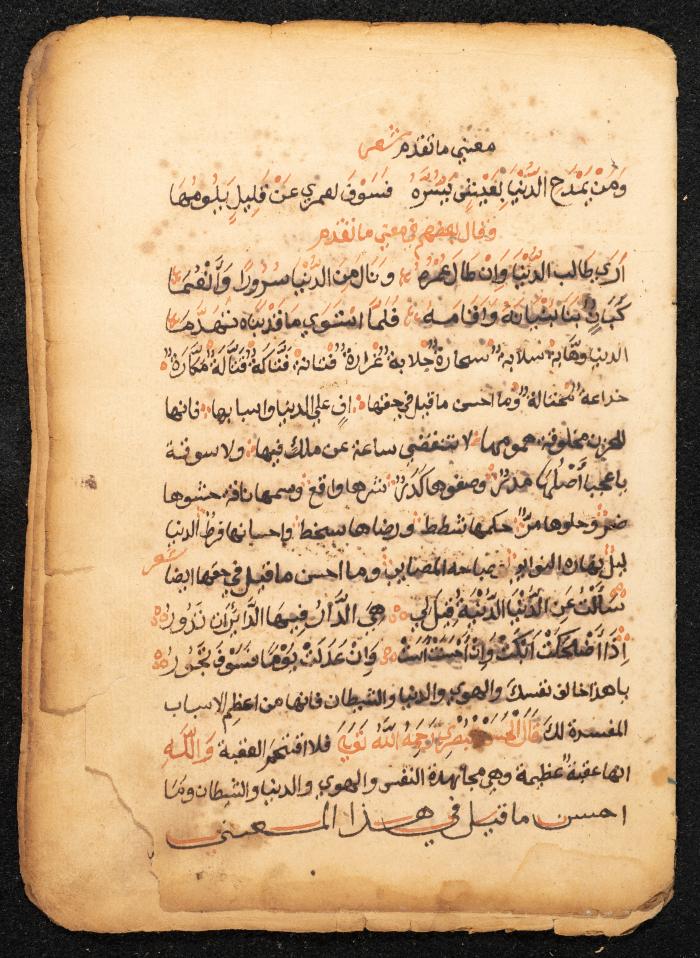 معني ما تقدم شعر
وَمَنْ يَمْدَحِ الدُّنْيَا لِعَيْشٍ يَسُرُّهُ فَسَوْفَ لعمري عَنْ قَلِيلٍ يَلُومُهَا
وقال بعضهم في معني ما تقدم
اَرَي طالب الدُّنْيَا وَاِنْ طَالَ عُمْرُهُ وَنَالَ مِنَ الدُّنْيا سُرُورًا وَاَنْعُمَا
كَبَانٍ بَنَا بُنْيَانَهُ وَاَقَامَهُ فَلَمَّا اسْتَوَي مَا قَدْ بَنَاهُ تَهَدَّمَا
الدنيا وهَّابة سلابة سمارة خلابة غرارة فتانة فتاكة قتالة مكارة
خداعة مختالة وما احسن ما قيل في حقها اف علي الدنيا واسبابها فانها
للحزن مخلوقة همومها لا تنقضي ساعة عن ملك فيها ولا سوقة
يا عجبا اصلها مدر وصفوها كدر شرها واقع وسمها ناقع حشوها
ضر وحلوها مر حكمها شطط ورضاها سخط واحسانها فرط الدنيا
ليل نهاره النوايب صباحه المصايب وما احسن ما قيل في حقها ايضا شعر
سَاَلْتُ عَنِ الدُّنْيَا الدَّنِيَّةِ قِيلَ لِي هِيَ الدَّارُ فِيهَا الدَّائِرَاتُ تَدُورُ
اِذَا اَضْحَكَتْ اَبْكَتْ وَاِنْ اَحْسَنَتْ اَسَتْ وَاِنْ عَدَلَتْ يَوْمًا فَسَوْفَ تَجُورُ
يا هذا خالف نفسك والهوي والدنيا والشيطان فانها من اعظم الاسباب
المفسدة لك قَالَ الْحَسَنْ بَصْرِي رَحِمَهُ اللّٰهُ فلا اقتحم العقبة وَاللّٰهِ
انها عقبة عظيمة وهي مجاهدة النفس والهوي والدنيا والشيطان وما
احسن ما قيل في هذا المعني